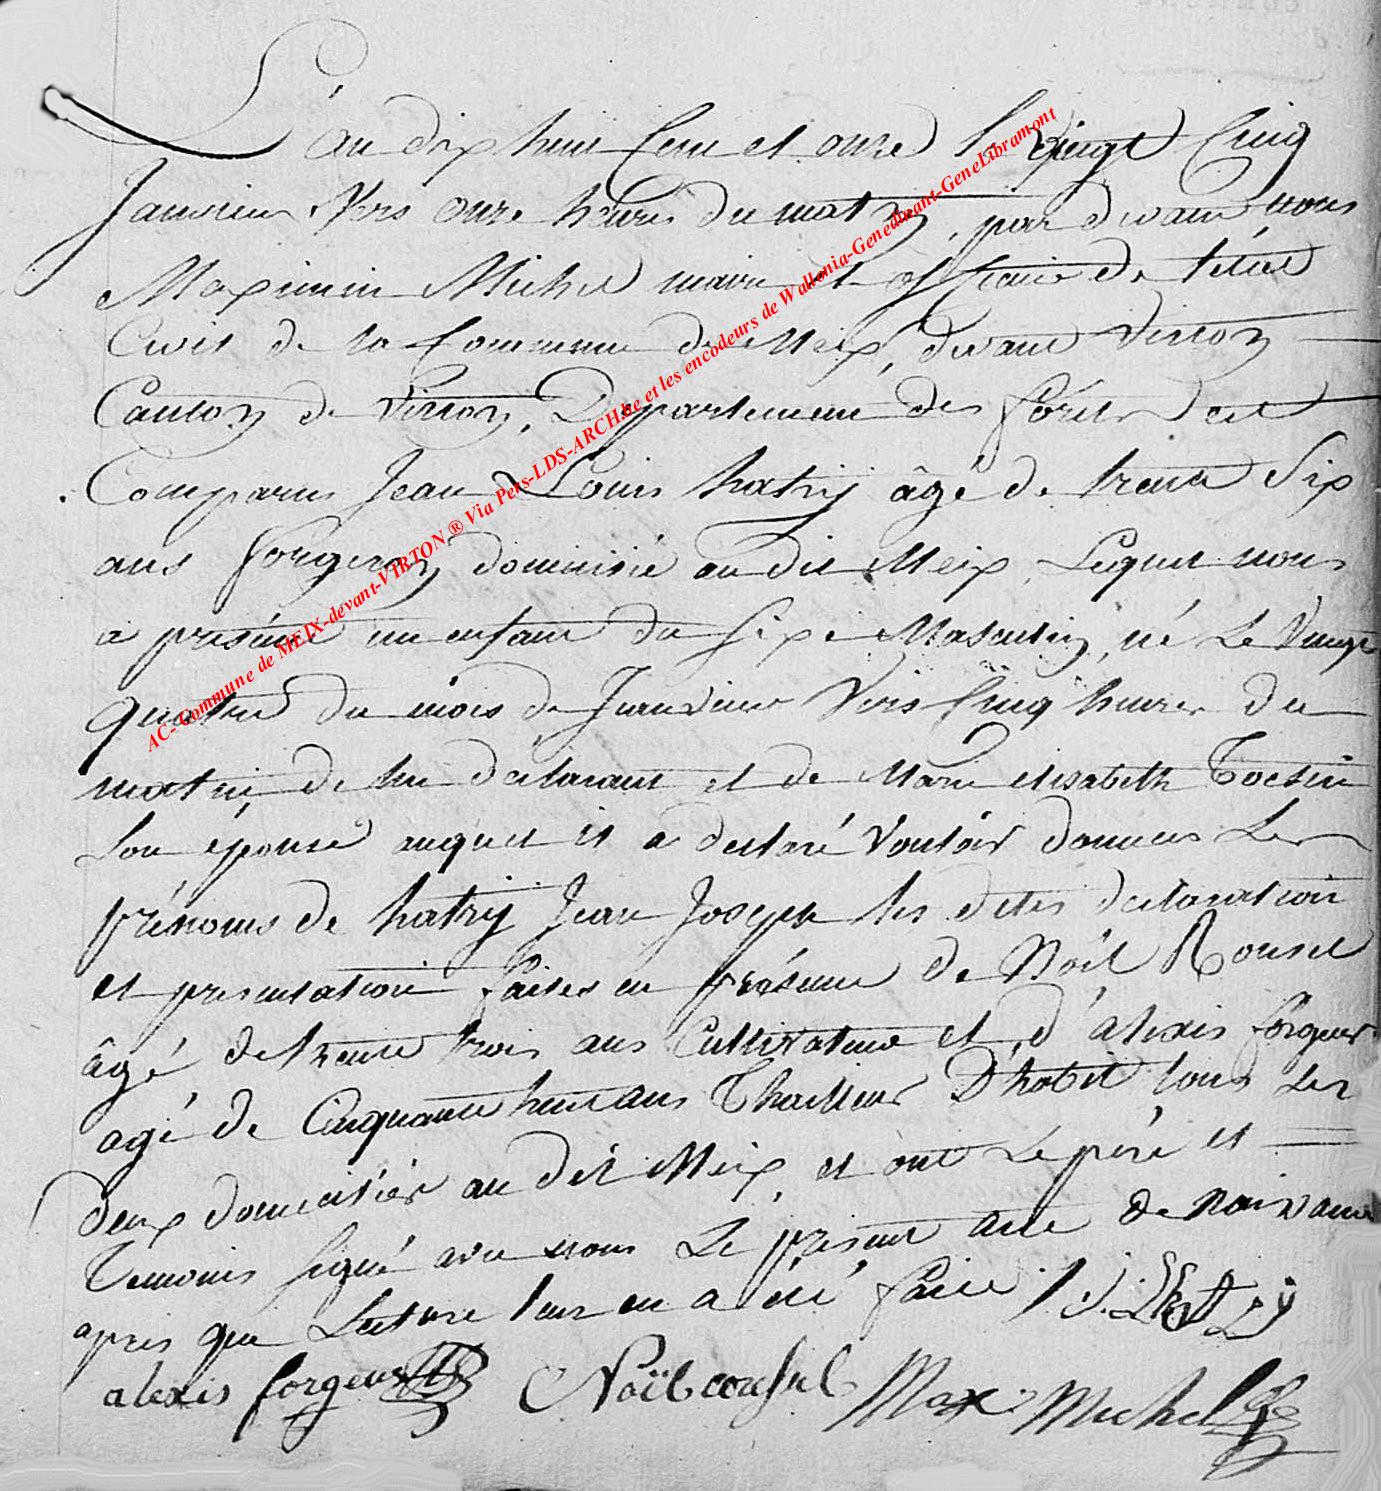 L'an dix huit Cent et onze le vingt Cinq
Janvier vers onze heures du matin, par devant nous
Maximin Michel maire et officier de l'état
Civil de la Commune de Meix, devant Virton
Canton de Virton, Département des forêts est
Comparus Jean Louis hatrij âgé de trente Six
ans forgeron domicilié au dit Meix Lequel nous
a présenté un enfant du sexe Masculin, né Le Vingt
quatre du mois de Janvier Vers Cinq heures du
matin de lui déclarant et de Marie elisabeth Tocsin
Son épouse auquel il a déclaré Vouloir donner Les
prénoms de hatrij Jean Joseph les dites déclaration
et presentation faites en présence de Noël Rousel
âgé de trente trois ans Cultivateur et d'alexis forgeur
agé de Cinquante huit ans Thailleur D'habit tous Les
deux domiciliés au dit Meix, et ont Le père et
Temoins signé avec nous Le présent acte de Naissance
apres que Lecture leur en a été faite
alexis forgeur Noël Max Michel
AC-Commune de MEIX-devant-VIRTON ® Via Pers-LDS-ARCHbe et les encodeurs de Wallonia-Genedinant-GeneLibramont